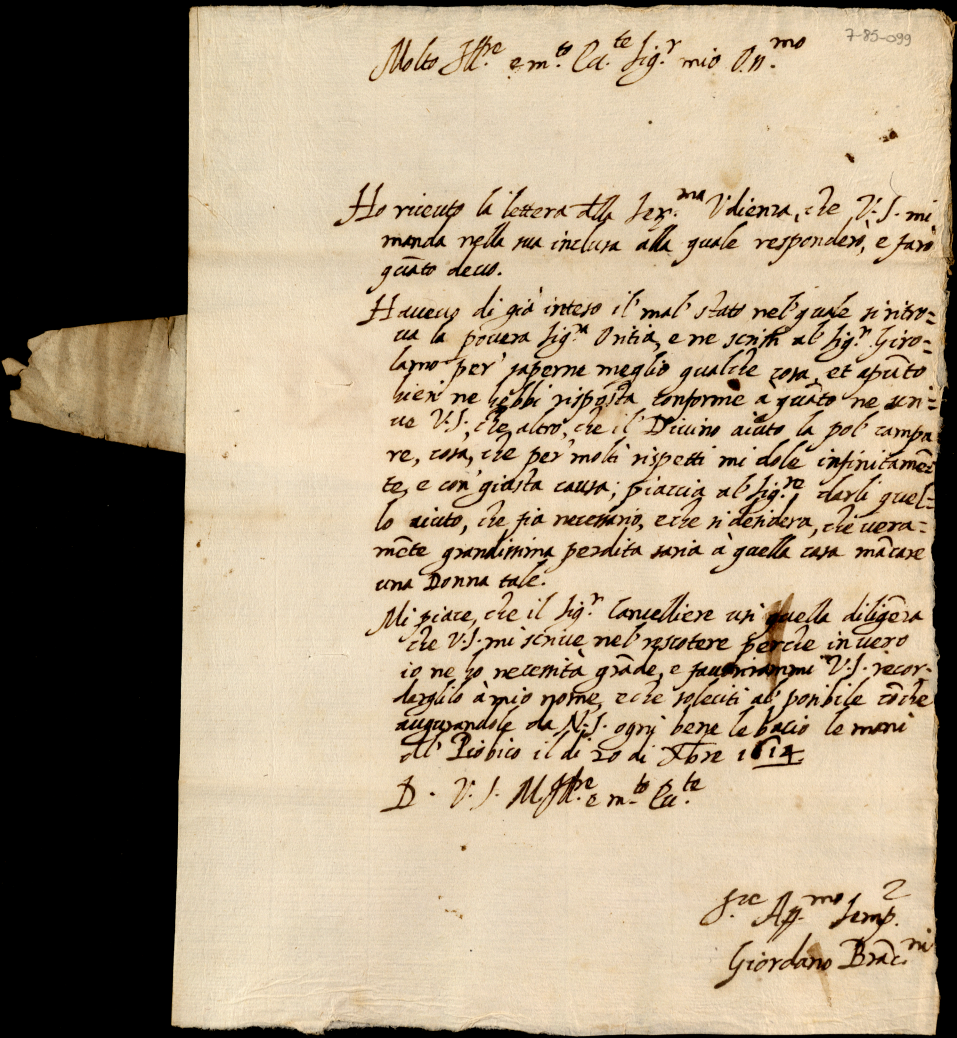 7-85-099
Molto Ill.re e m.to Ecc.te Sig.r mio Oss.mo
Ho riceuto la lettera della Ser.ma Vdienza, che V. S. mi
manda nella sua inclusa alla quale responderò, e farò
quãto deuo.
Haueuo di già inteso il mal stato nel quale si ritro=
ua la pouera Sig.ra Ortitia, e ne scrissi al Sig.r Giro=
lamo per saperne meglio qualche cosa, et apũto
hieri ne hebbi risposta conforme à quãto ne scri=
ue V. S., che altro, che il Diuino aiuto la pol campa
re, cosa, che per molti rispetti mi dole infinitamẽ
te, e con giusta causa; piaccia al Sig.re darli quel=
lo aiuto, che sia necessario, e che si desidera, che uera=
mẽte grandissima perdita saria à quella casa mãcare
una Donna tale.
Mi piace, che il Sig.r Cancelliere usi quella diligẽza
che V. S. mi scriue nel rescotere perche in uero
io ne ho necessità grãde, e fauorirammi V. S. recor-
darglilo à mio nome, e che soleciti al possibile cõ che
augurandole da N. S. ogni bene le bacio le mani
di Piobico il di 20 di Xbre 1614
D. V. S. M. Ill.re e m.to Ecc.te
S.re Aff.mo Semp.
Giordano Brãc.ni